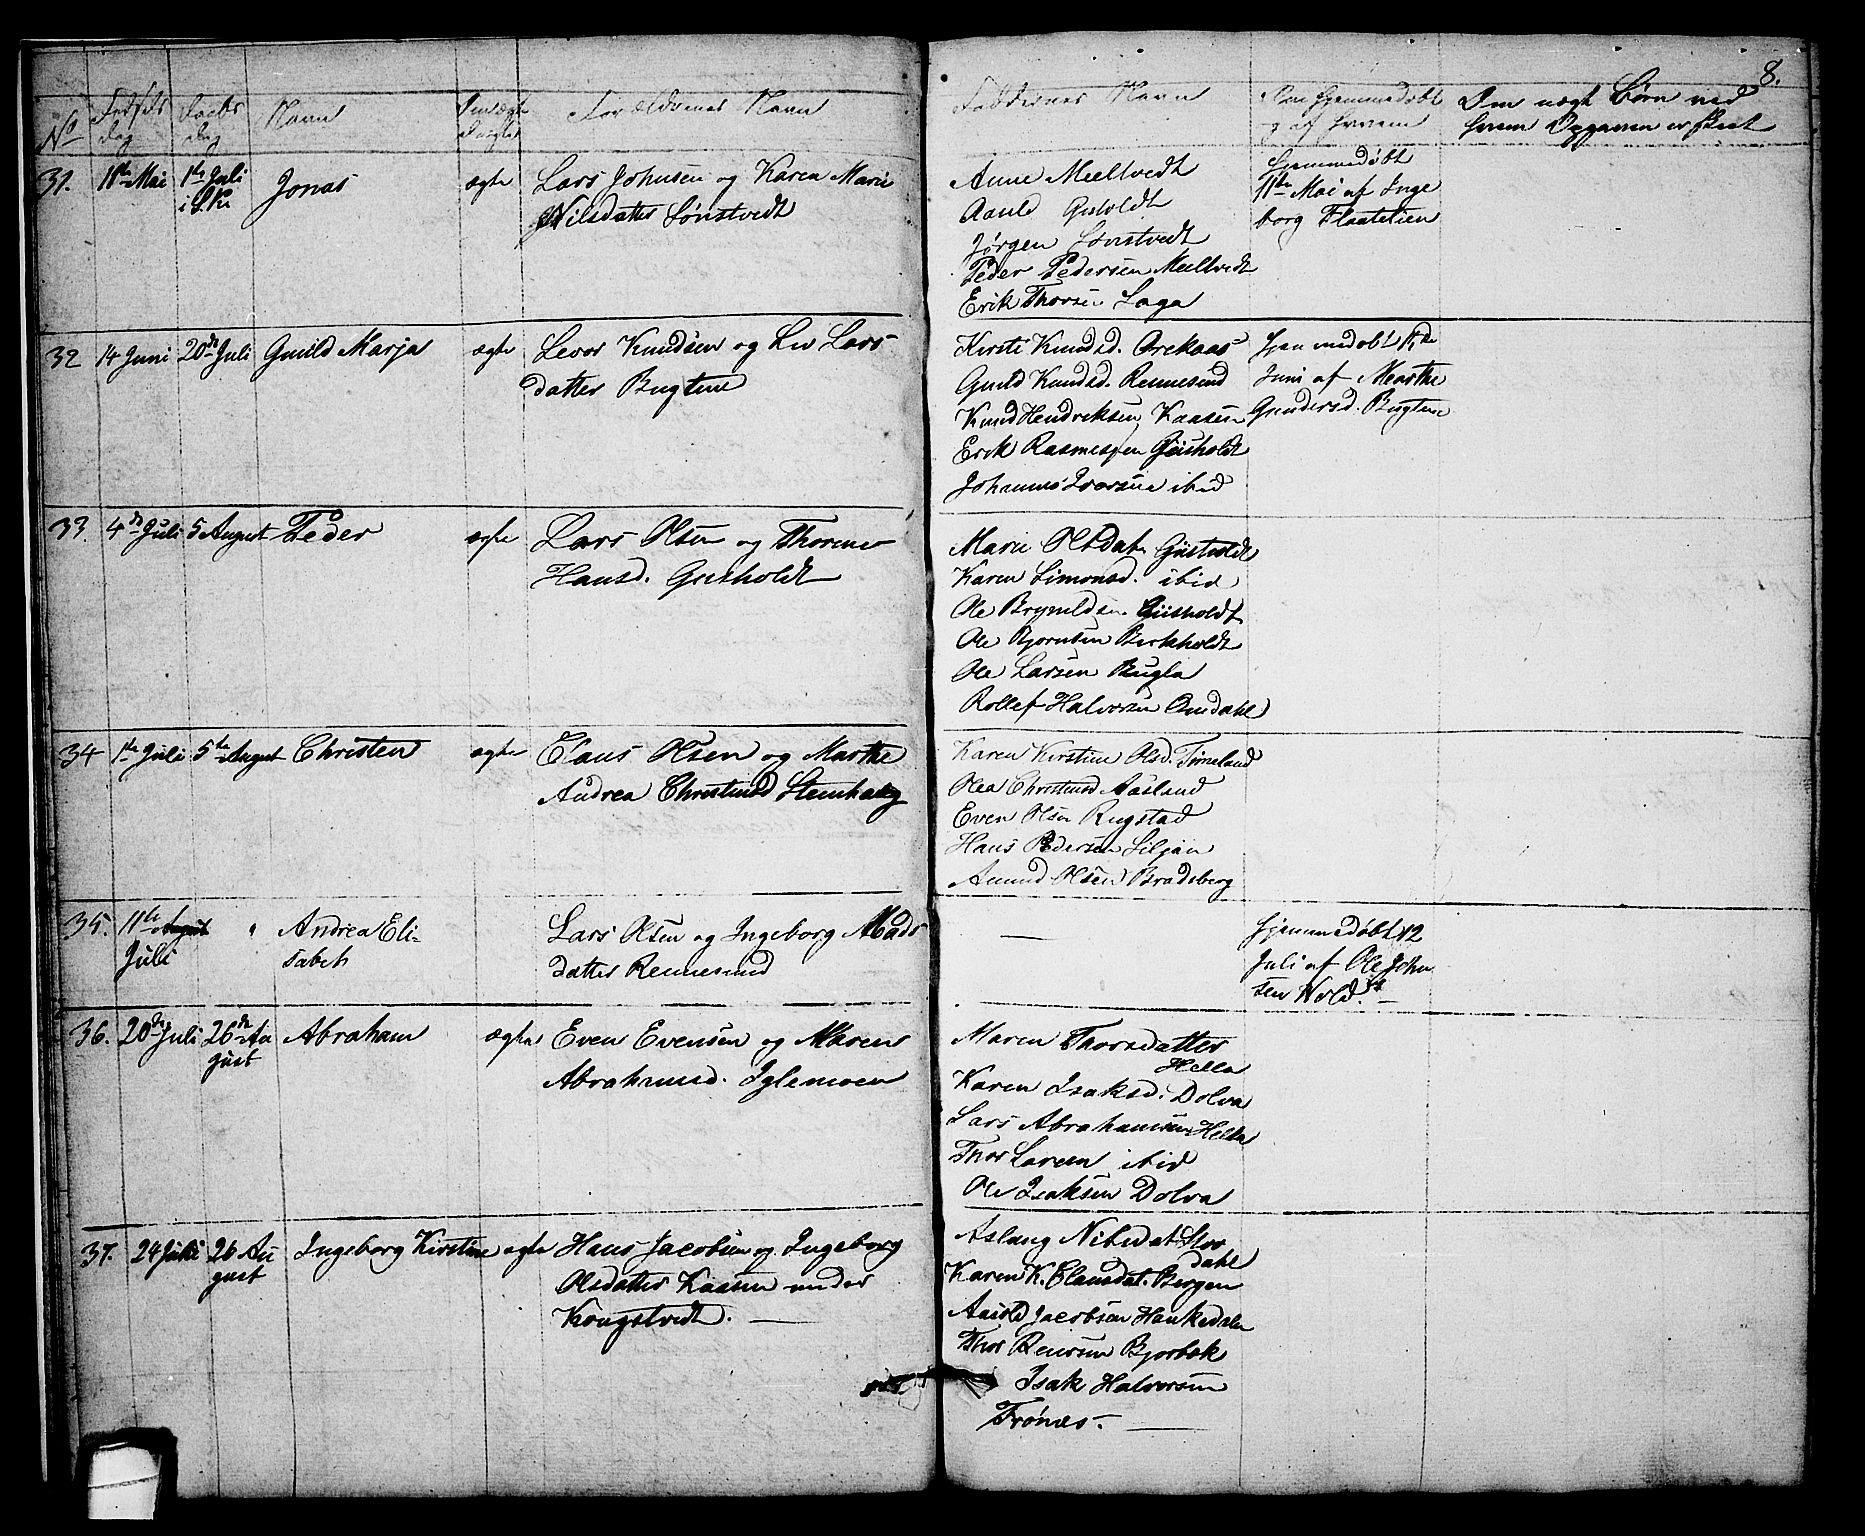 8.
No
Fødsels
Dag
Daabs
Dag
Navn
Om ægte
Forældrenes Navn
Faddernes Navn
Om hjemmedøbt
og af hvem
Om uægt Børn ved
hvem Opgaven er skeet
31. 11te Mai 1te Juli Jonas ægte Lars Johnsen og Karen Marie
Nilsdatter Sønstvedt
Anne Meeltvedt
Jørgen Sønstvedt
Peder Pedersen Meeltvedt
Erik Thorsen Laga
hjemmedøbt
11te Mai af Inge
borg Flaatetien
32 14 Juni 20de Juli Gunild Marja ægte Levor Knudsen og Liv Lars
datter Bugten
Kirsti Knudsd.
Gunild Knudsd. Rennesund
Knud Hendriksen Kaasen
Erik Rasmessen Giisholdt
Johannes Iversen ibid
hjemmedøbt
Juni af Marthe
Gundersd. Bugten
33. 4de Juli 5 August Peder ægte Lars Olsen og Thorine
Hansd. Giisholdt
Marie Olsdat. Giisholdt
Karen Simonsd. ibid
Ole Brynildsen Giisholdt
Ole Bjørnsen Berkholdt
Ole Larsen Bugla
Rollef Halvorsen Omdahl
34 1te Juli 5te August Christen ægte Claus Olsen og Marthe
Andrea Christensd Stenhaug
Karen Kirstine Olsd. Tørneland
Olea Christensd Aasland
Even Olsen Rugstad
Hans Pedersen Siljan
Amund Olsen Bradsberg
35. 11te August " Andrea Eli-
Juli sabet
Lars Olsen og Ingeborg Mads
datter Rennesund
—
hjemmedøbt 12
Juli af Ole John
sen Wold. —
36. 20de Juli 26de Au
gust
Abraham ægte Even Evensen og Maren
Abrahamsd. Iglemoen
Maren Thorsdatter
Hella
Karen Isaksd. Dolva
Lars Abrahamsen Hella
Thor Larsen ibid
Ole Isaksen Dolva
37. 24 Juli 26 Au
gust
Ingeborg Kirstine ægte Hans Jacobsen og Ingeborg
Olsdatter Kaasen under
Kongstvedt. —
Aslaug Nilsdat. Stor
dahl
Karen K. Clausdat. Bergen
Jacobsen Hankedalen
Thor Reiersen Bjorbæk
Isak Halvorsen
Trønæs. —